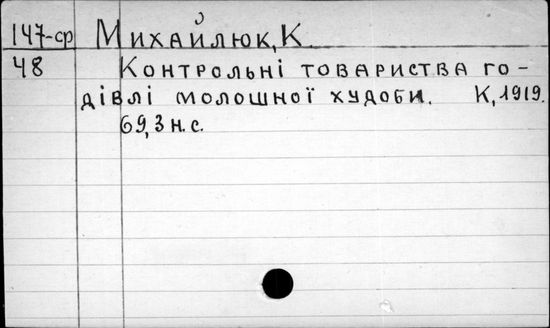 147-ср Михайлюк, К.
48 Контрольні товариства го-
дівлі молошної худоби. К, 1919.
69, 3 н. с.